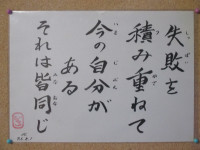 失敗を
積み重ねて
今の自分が
ある
それは皆同じ